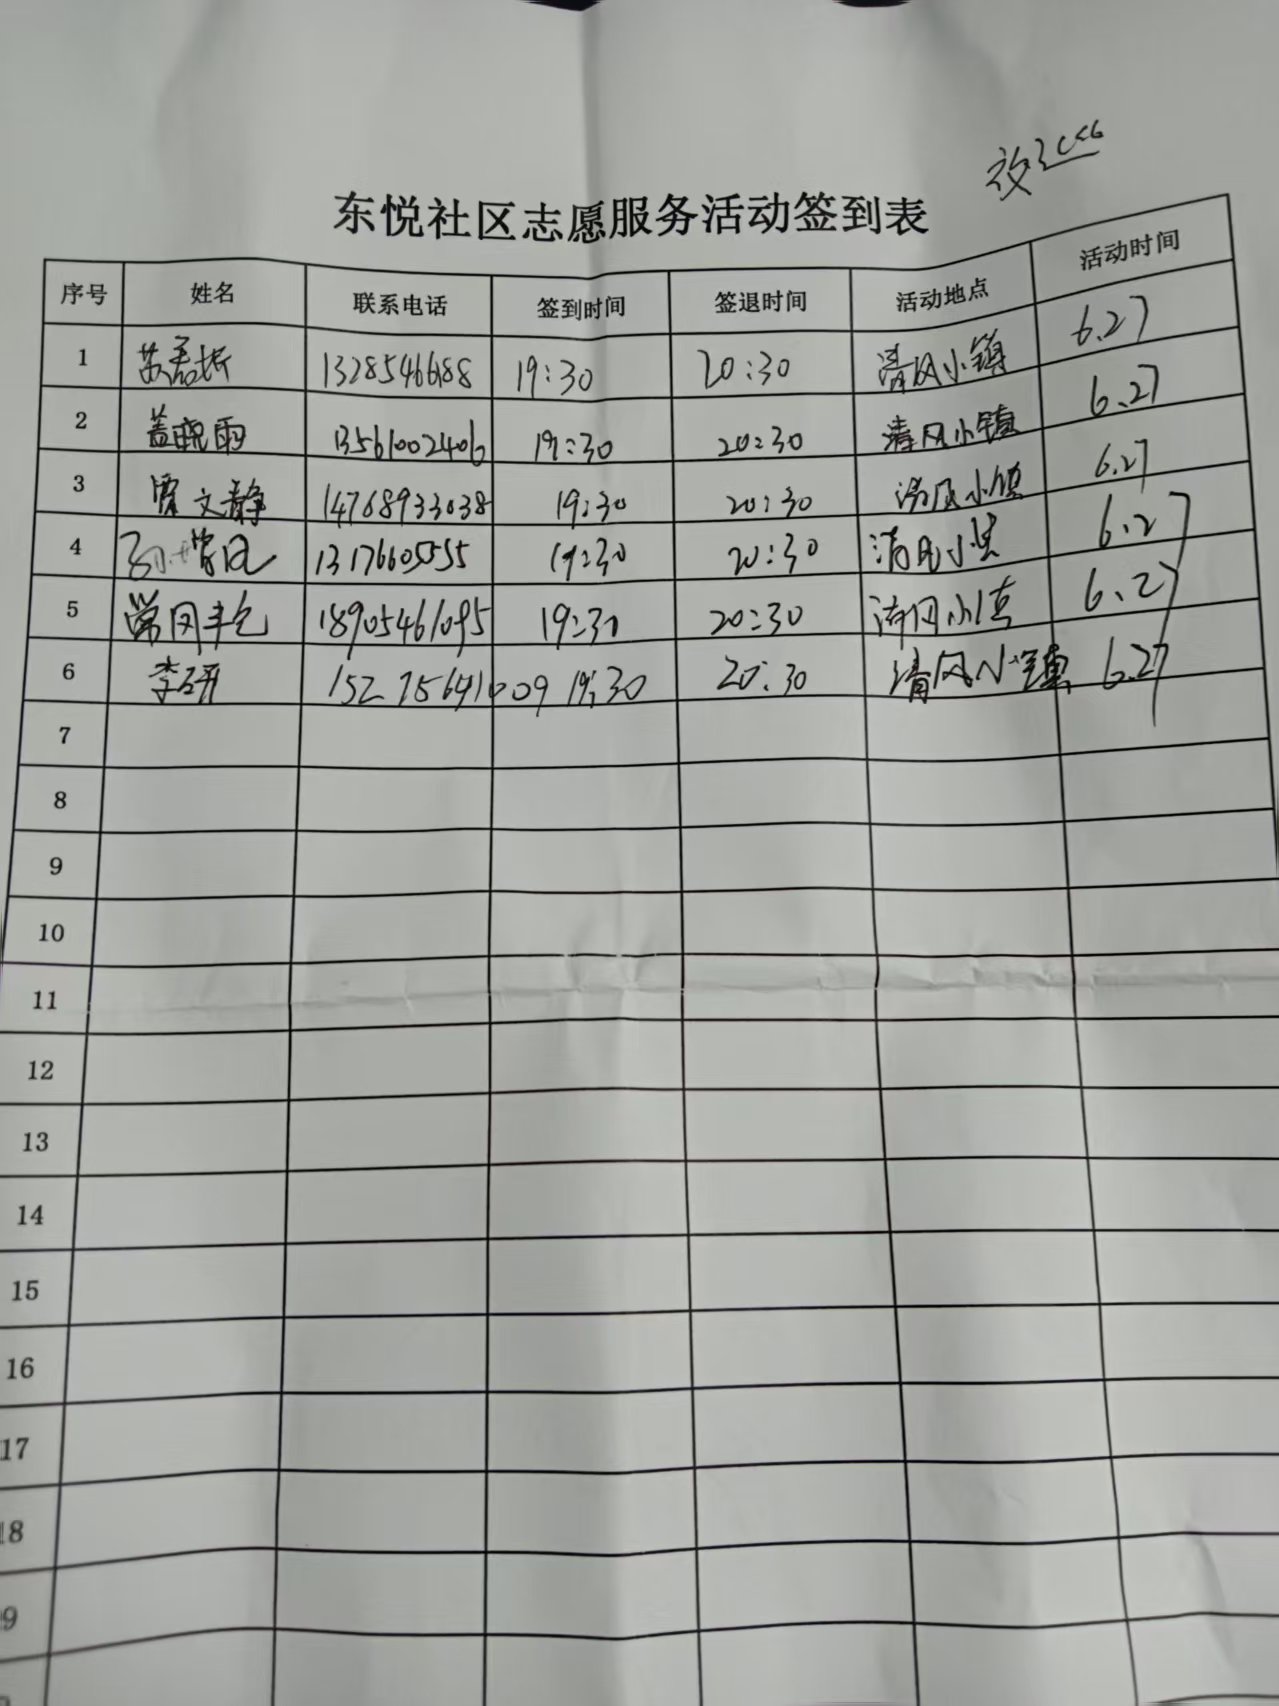 东悦社区志愿服务活动签到表
序号 姓名 联系电话 签到时间 签退时间 活动地点 活动时间
1 13285546688 19:30 20:30 清风小镇 6.27
2 盖晓雨 13561002406 19:30 20:30 清风小镇 6.27
3 文静 14768933038 19:30 20:30 清风小镇 6.27
4 13176605555 19:30 20:30 清风小镇 6.27
5 18905461095 19:30 20:30 清风小镇 6.27
6 李研 19:30 20:30 清风小镇 6.27
7
8
9
10
11
12
13
14
15
16
17
18
9